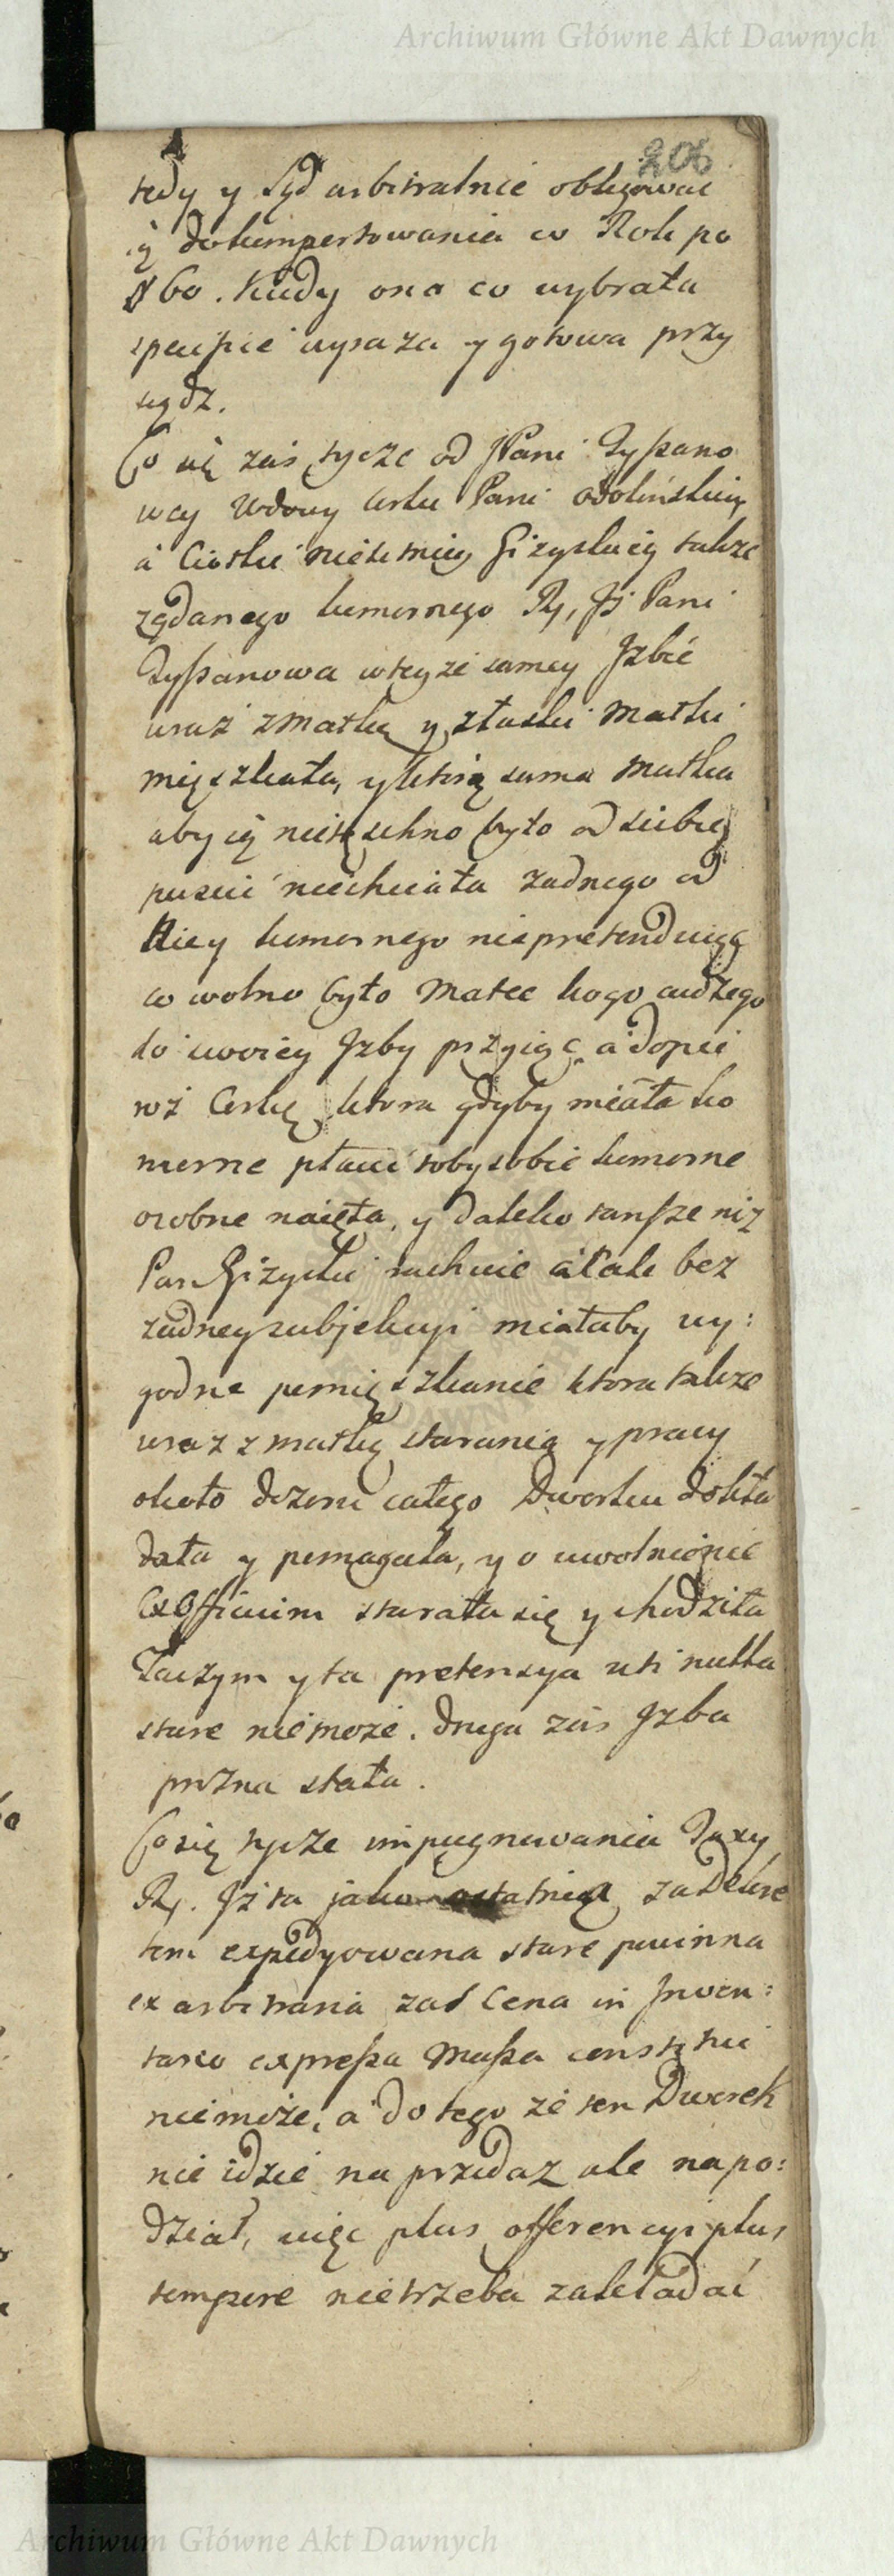 Archiwum Główne Akt Dawnych
206
tedy y Sąd arbitralnie obligować
ią do komportowania co Rok po
60. Kiedy ona co wybrała
specifice wyraza y gotowa przy
siądz.
Co się zaś tycze od JPani Zyszano
wey Wdowy Corki Pani Odolinskiey
a Ciotki nieletniey Giżyckiey także
ządanego komornego Rx, Jż Pani
Zyszanowa w teyże samey Jzbie
wraz z matką y z łaski Matki
mięszkała, y którą sama Matka
aby ią nietęschno było od siebie
puscić niechciała zadnego od
Niey komornego niepretenduiąc
co wolno było Matce kogo cudzego
do swoiey Jzby przyiąć a dopie
roż Corkę, ktora gdyby miała ko
morne płacić toby sobie komorne
osobne naięła, y daleko tansze niż
Pan Giżycki rachuie a tak bez
żadney subjekcyi miałaby wy:
godne pomięszkanie ktora także
wraz z matką starania y pracy
około dozoru całego Dworku dokła
dała y pomagała, y o uwolnienie
Ex Officium starała się y chodziła
Zaczym y ta pretensya uti nulla
stare niemoże. druga zaś Jzba
prozna stała.
Co się tycze impugnowania Taxy
Rx. Jż ta jako ostatnia za Dekre
tem expedyowana stare powinna
ex arbitraria zaś Cena in Jnwen:
tario expressa Massa constitui
niemoże, a do tego że ten Dworek
nie idzie na przedaz ale na po:
dział, więc plus offerencyi plus
tempore nietrzeba zakładać
Archiwum Główne Akt Dawnych